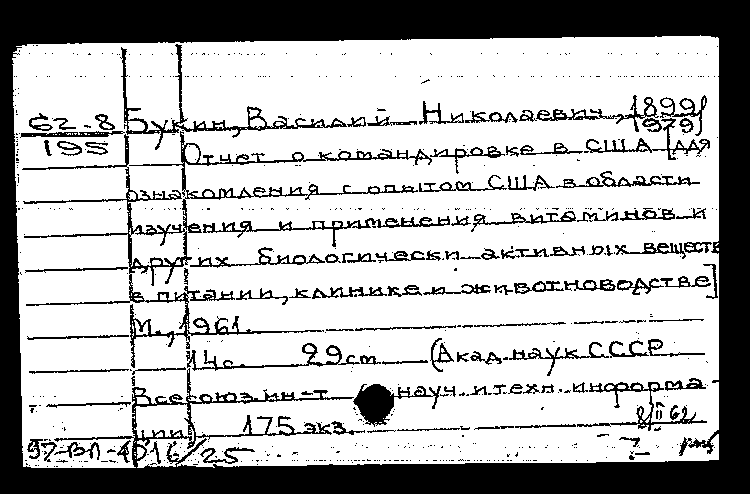 62-8 Букин, Василий Николаевич, 1899/
195 1979
Отчет о командировке в США [для
ознакомления с опытом США в области
изучения и применения витаминов и
других биологически активных веществ
в питании, клинике и животноводстве]
М., 1961.
14с. 29см (Акад. наук СССР.
Всесоюз. ин-т науч. и техн. информа-
ции) 175 экз. 8/II 62
97-ВЛ-4016/25